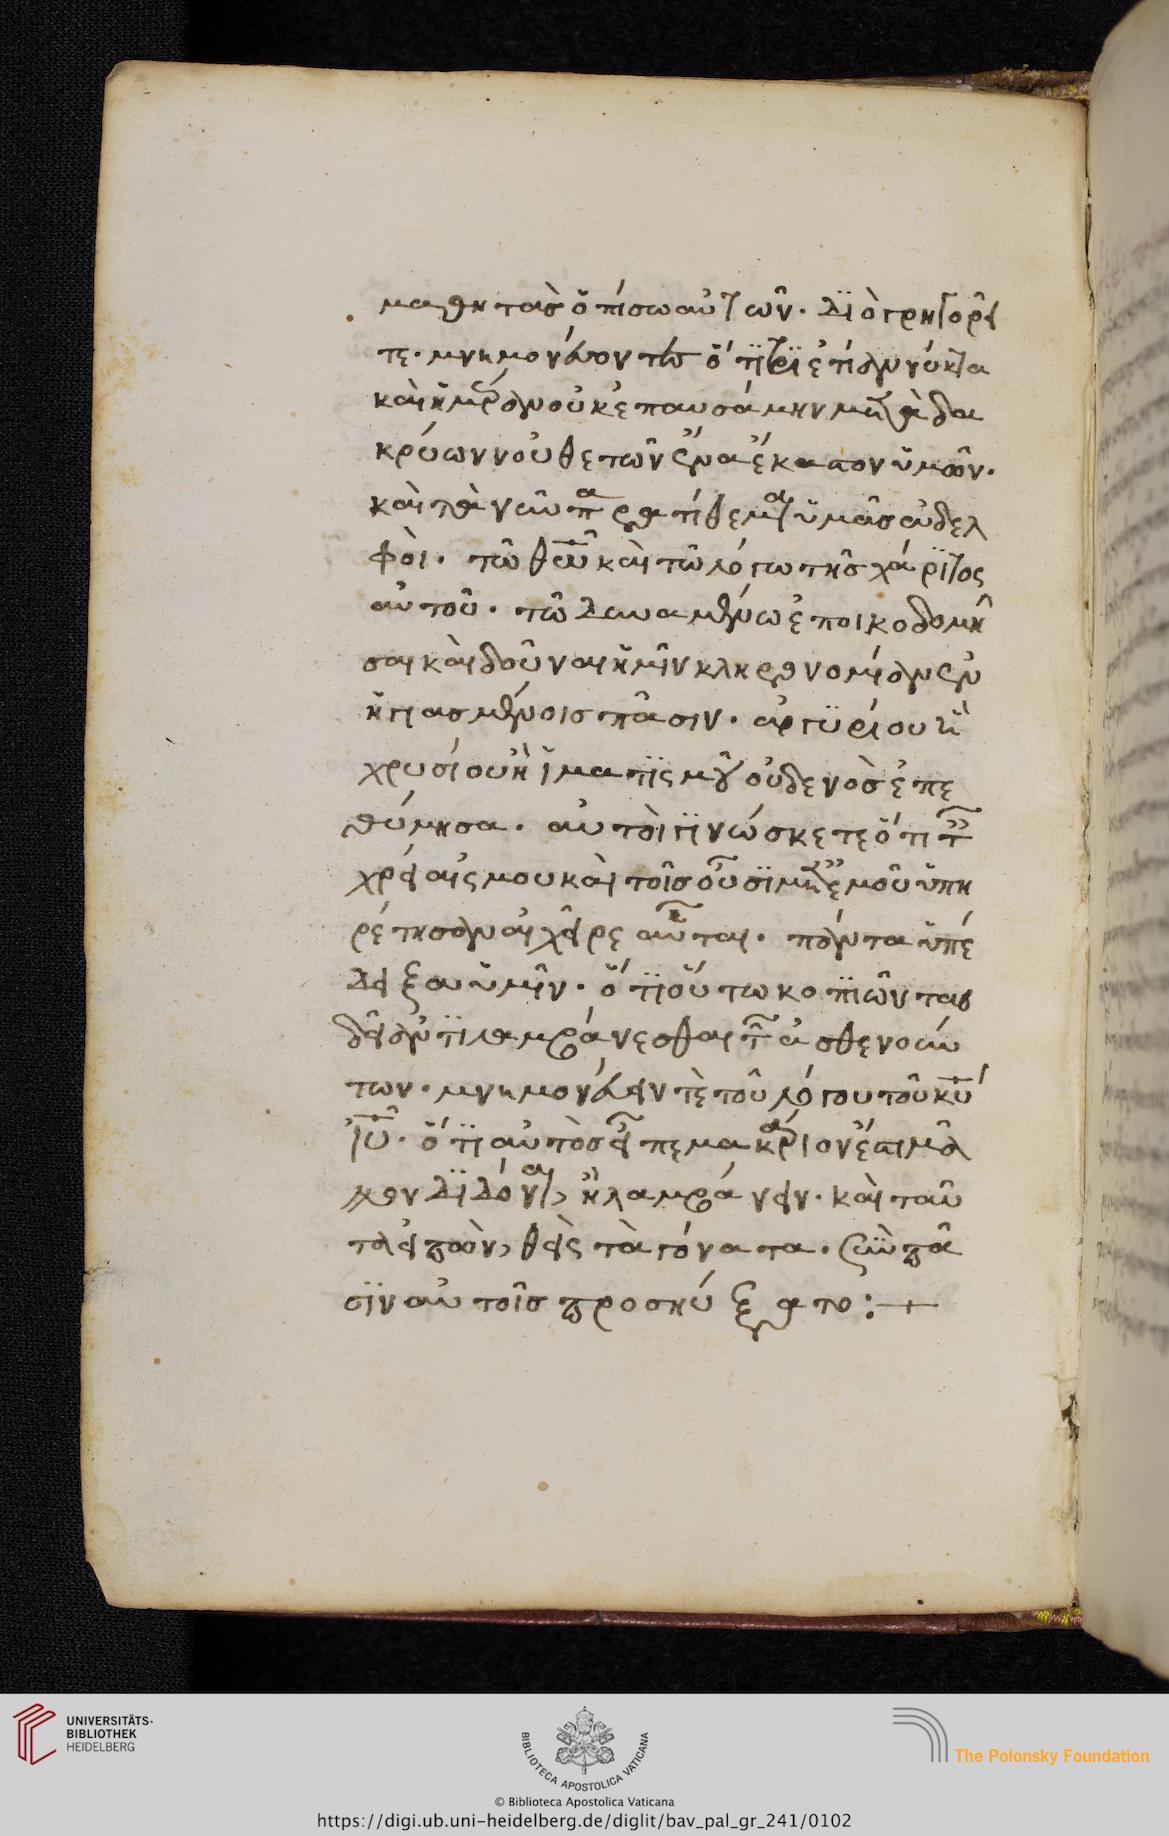 μαθητὰσ ὀπίσω αὐτῶν. διὸ γρηγορεῖ
τε. μνημονεύοντεσ ὅτϊ τριετίαν νύκτα
καὶ ἡμέραν οὐκ ἐπαυσάμην μετὰ δα
κρύων νουθετῶν ἕνα ἕκαστον ὑμῶν.
καὶ τὰ νῦν παρατίθεμαι ὑμᾶσ ἀδελ
φοὶ. τῶ θεῶ καὶ τῶ λόγω τῆσ χάρϊτος
αὐτοῦ. τῶ δυναμένω ἐποικοδομῆ
σαι καὶ δοῦναι ἡμῖν κληρονομίαν ἐν
ἡγιασμένοισ πᾶσιν. ἀργϋρίου ἢ
χρυσίου ἢ ἱματϊς μοῦ οὐδενὸσ ἐπε
θύμησα. αὐτοὶ γϊνώσκετε ὅτι τ
χρείαις μου καὶ τοῖσ οὖσϊ μετ ἐμοῦ ὑπη
ρέτησαν αἱ χεῖρες αὗται. πάντα ὑπέ
δειξα ὑμῖν. ὅτϊ οὕτω κοπϊῶντας
δεῖ ἀντϊλαμβάνεσθαι τ ἀσθενούν
των. μνημονεύειν τὲ τοῦ λόγου τοῦ κυ
ιυ. ὅτϊ αὐτὸσ εἶπε μακάριον ἐστι μᾶλ
λον δϊδόναι, ἢ λαμβάνειν. καὶ ταῦ
τα εἰπὼν, θεὶς τὰ γόνατα. σὺν πᾶ
σϊν αὐτοῖσ προσηύξατο:+
UNIVERSITÄTS-
BIBLIOTHEK
HEIDELBERG
BIBLIOTECA APOSTOLICA VATICANA
The Polonsky Foundation
© Biblioteca Apostolica Vaticana
https://digi.ub.uni-heidelberg.de/diglit/bav_pal_gr_241/0102